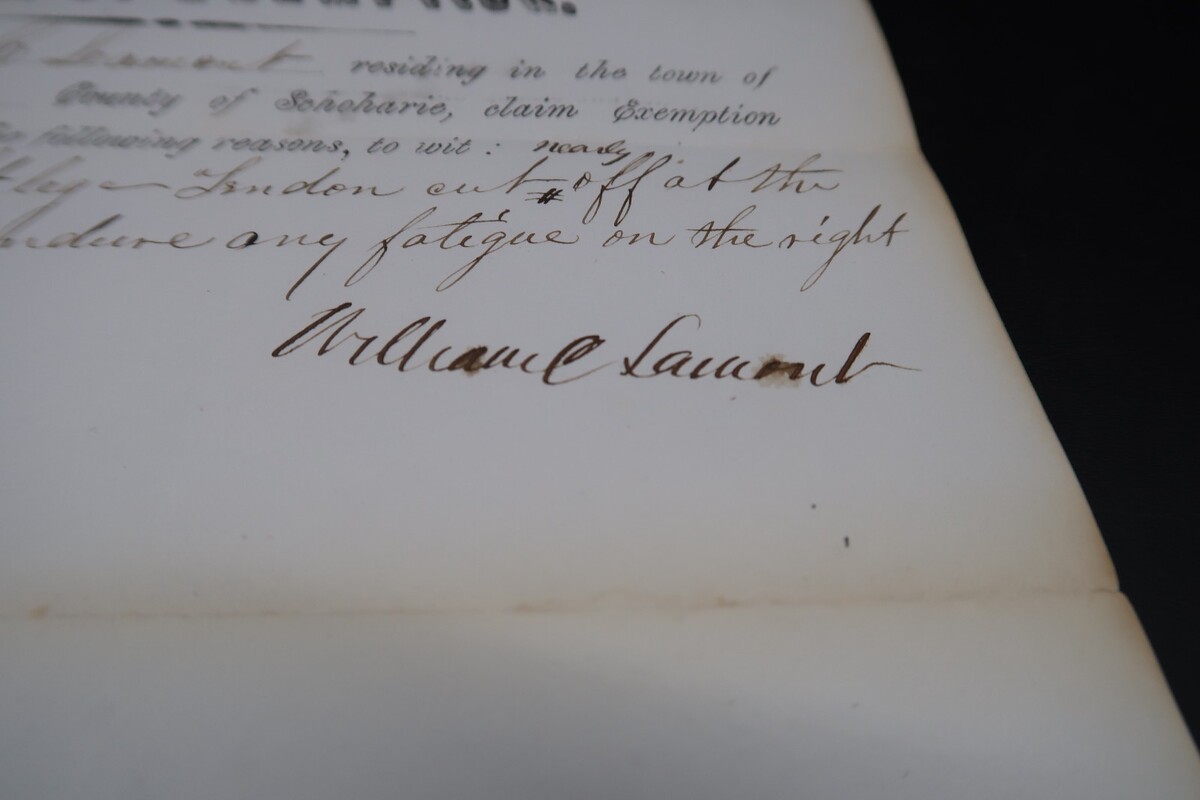 Lamont residing in the town of
County of Schoharie, claim Exemption
following reasons, to wit: nearly
leg - Tendon cut off at the
endure any fatigue on the right
William C Lamont